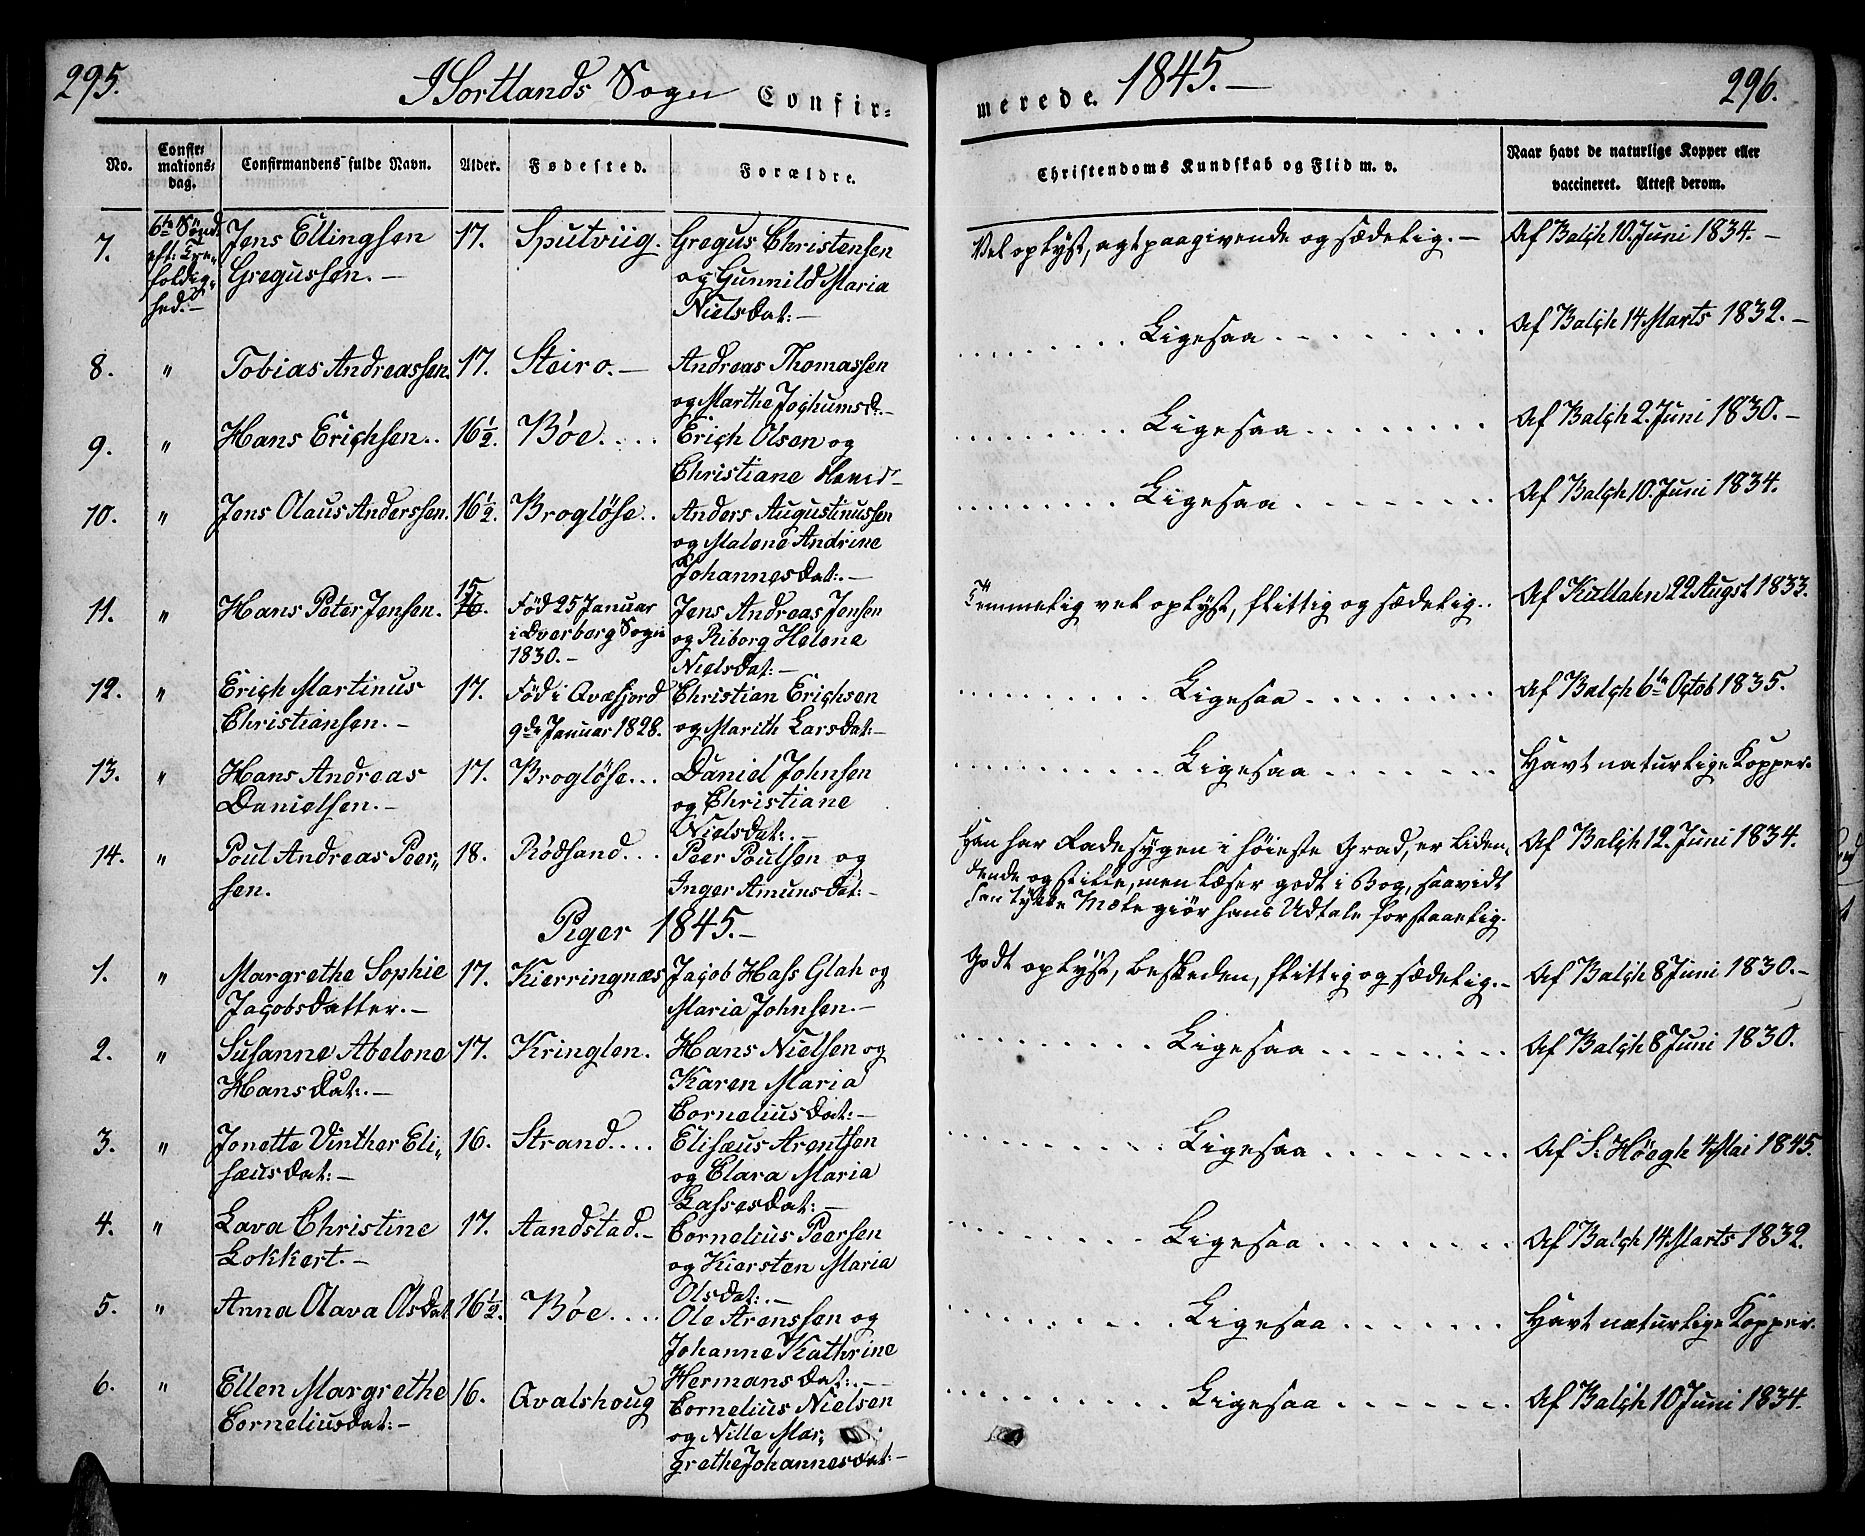 295.
I Sortlands Sogn Confir-
merede. 1845.-
296.
No.
Confir-
mations-
dag.
Confirmandens fulde Navn.
Alder.
Fødested.
Forældre.
Christendoms Kundskab og Flid m. v.
Naar havt de naturlige Kopper eller
vaccineret. Attest derom.
7.
6te Sønd.
eft: Tre-
foldig-
hed.-
Jens Ellingsen
Gregussen.-
17.
Sputviig.
Gregus Christensen
og Gunnild Maria
Nielsdat:-
Vel oplyst, agtpaagivende og sædelig.-
Af Balch 10. Juni 1834.-
8.
"
Tobias Andreassen.
17.
Steiro.-
Andreas Thomassen
og Marthe Jochumsd:-
Ligesaa
Af Balch 14 Marts 1832.-
9.
"
Hans Erichsen..
16½.
Bøe....
Erich Olsen og
Christiane
Ligesaa
Af Balch 2. Juni 1830.-
10.
"
Jens Olaus Anderssen.
16½.
Brogløse..
Anders Augustinussen
og Malene Andrine
Johannesdat:-
Ligesaa
Af Balch 10. Juni 1834.
11.
"
Hans Peter Jensen.
15.
16.
Fød 25 Januar
i Dverberg Sogn
1830.-
Jens Andreas Jensen
og Riborg Helene
Nielsdat:-
Temmelig vel oplyst, flittig og sædelig..
Af 22 Augst 1833.
12.
"
Erich Martinus
Christiansen.-
17.
Fød i Qvæfjord
9de Januar 1828.
Christian Erichsen
og Marith Larsdat:-
Ligesaa
Af Balch 6te Octob 1835.
13.
"
Hans Andreas
Danielsen.-
17.
Brogløse...
Daniel Johnsen
og Christiane
Nielsdat:-
Ligesaa
Havt naturlige Kopper.
14.
"
Poul Andreas Peer,,
sen.
18.
Rødsand...
Peer Poulsen og
Inger Amunsdat:-
Han har Radesygen i høieste Grad, er Liden,,
dende og stille, men læser godt i Bog, saavidt
hans Mæle giør hans Udtale forstaaelig.
Af Balch 12. Juni 1834.
Piger 1845.-
1.
"
Margrethe Sophie
Jacobsdatter.-
17.
Kierringnæs
Jacob Hass Glah og
Maria Johnsen.-
Godt oplyst, beskeden, flittig og sædelig.-
Af Balch 8 Juni 1830.-
2.
"
Susanne Abelone
Hansdat:-
17.
Kringlen.
Hans Nielsen og
Karen Maria
Corneliusdat:-
Ligesaa
Af Balch 8 Juni 1830.
3.
"
Jonette Vinther Eli,,
sæusdat:-
16.
Strand....
Elisæus Arentsen
og Clara Maria
Lassesdat:-
Ligesaa
Af S. Høegh 4 Mai 1845.
4.
"
Lava Christine
Lokkert.-
17.
Aandstad.-
Cornelius Peersen
og Kiersten Maria
Olsdat:-
Ligesaa
Af Balch 14 Marts 1832.
5.
"
Anna Olava Olsdat
16½.
Bøe....
Ole Arenssen og
Johanne Kathrine
Hermansdat:-
Ligesaa
Havt naturlige Kopper.
6.
"
Ellen Margrethe
Corneliusdat:-
16.
Qvalshoug
Cornelius Nielsen
og Nille Mar,,
grethe Johannesdat:-
Ligesaa
Af Balch 10 Juni 1834.